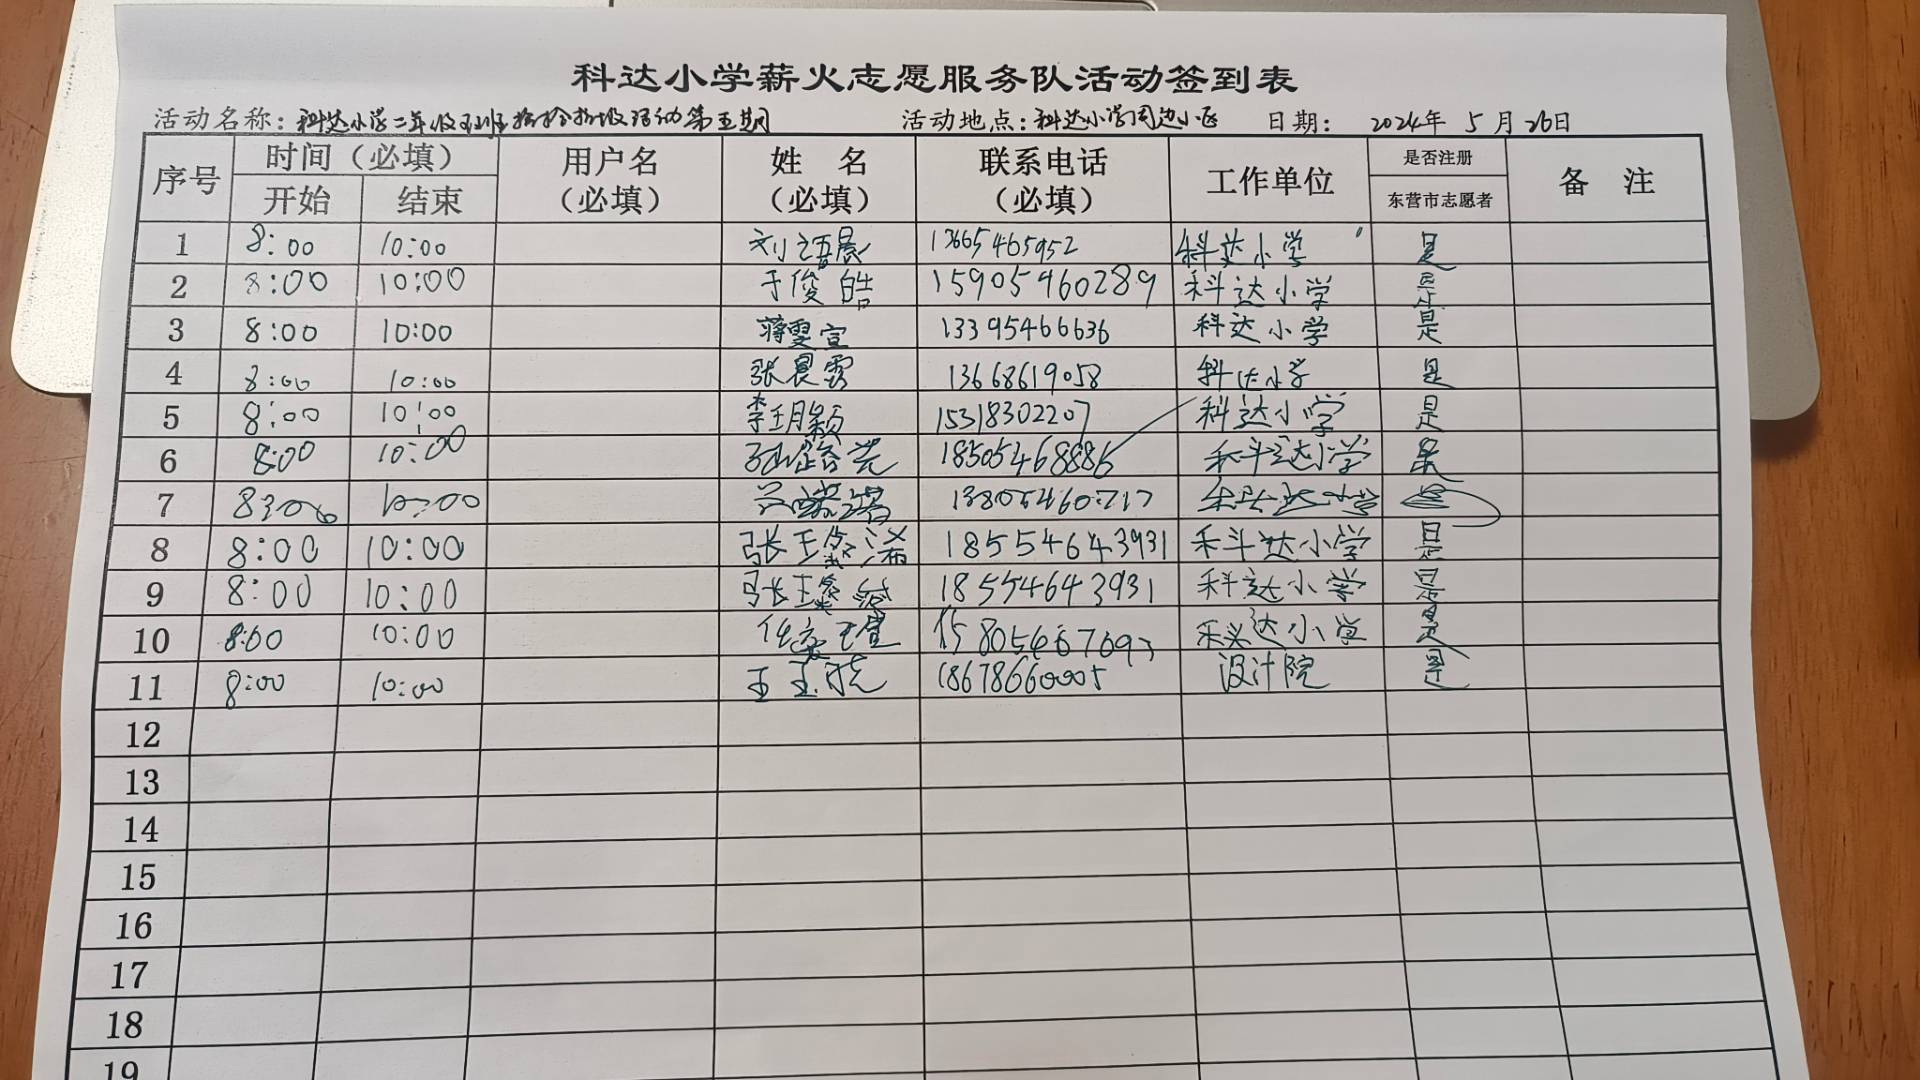 科达小学薪火志愿服务队活动签到表
活动名称：科达小学二年级五班捡拾垃圾活动第五期 活动地点：科达小学周边小区 日期： 2024年 5月 26日
序号 时间（必填） 用户名（必填） 姓 名（必填） 联系电话（必填） 工作单位 是否注册 备 注
开始 结束 东营市志愿者
1 8:00 10:00 刘语晨 13665465952 科达小学 是
2 8:00 10:00 于俊皓 15905460289 科达小学 是
3 8:00 10:00 蒋雯宣 13395466636 科达小学 是
4 8:00 10:00 张晨露 13668619058 科达小学 是
5 8:00 10:00 李玥颖 15318302207 科达小学 是
6 8:00 10:00 18505468886 科达小学 是
7 10:00 科达小学 是
8 8:00 10:00 18554643931 科达小学 是
9 8:00 10:00 18554643931 科达小学 是
10 8:00 10:00 15805467693 科达小学 是
11 8:00 10:00 18678660005 设计院 是
12
13
14
15
16
17
18
19